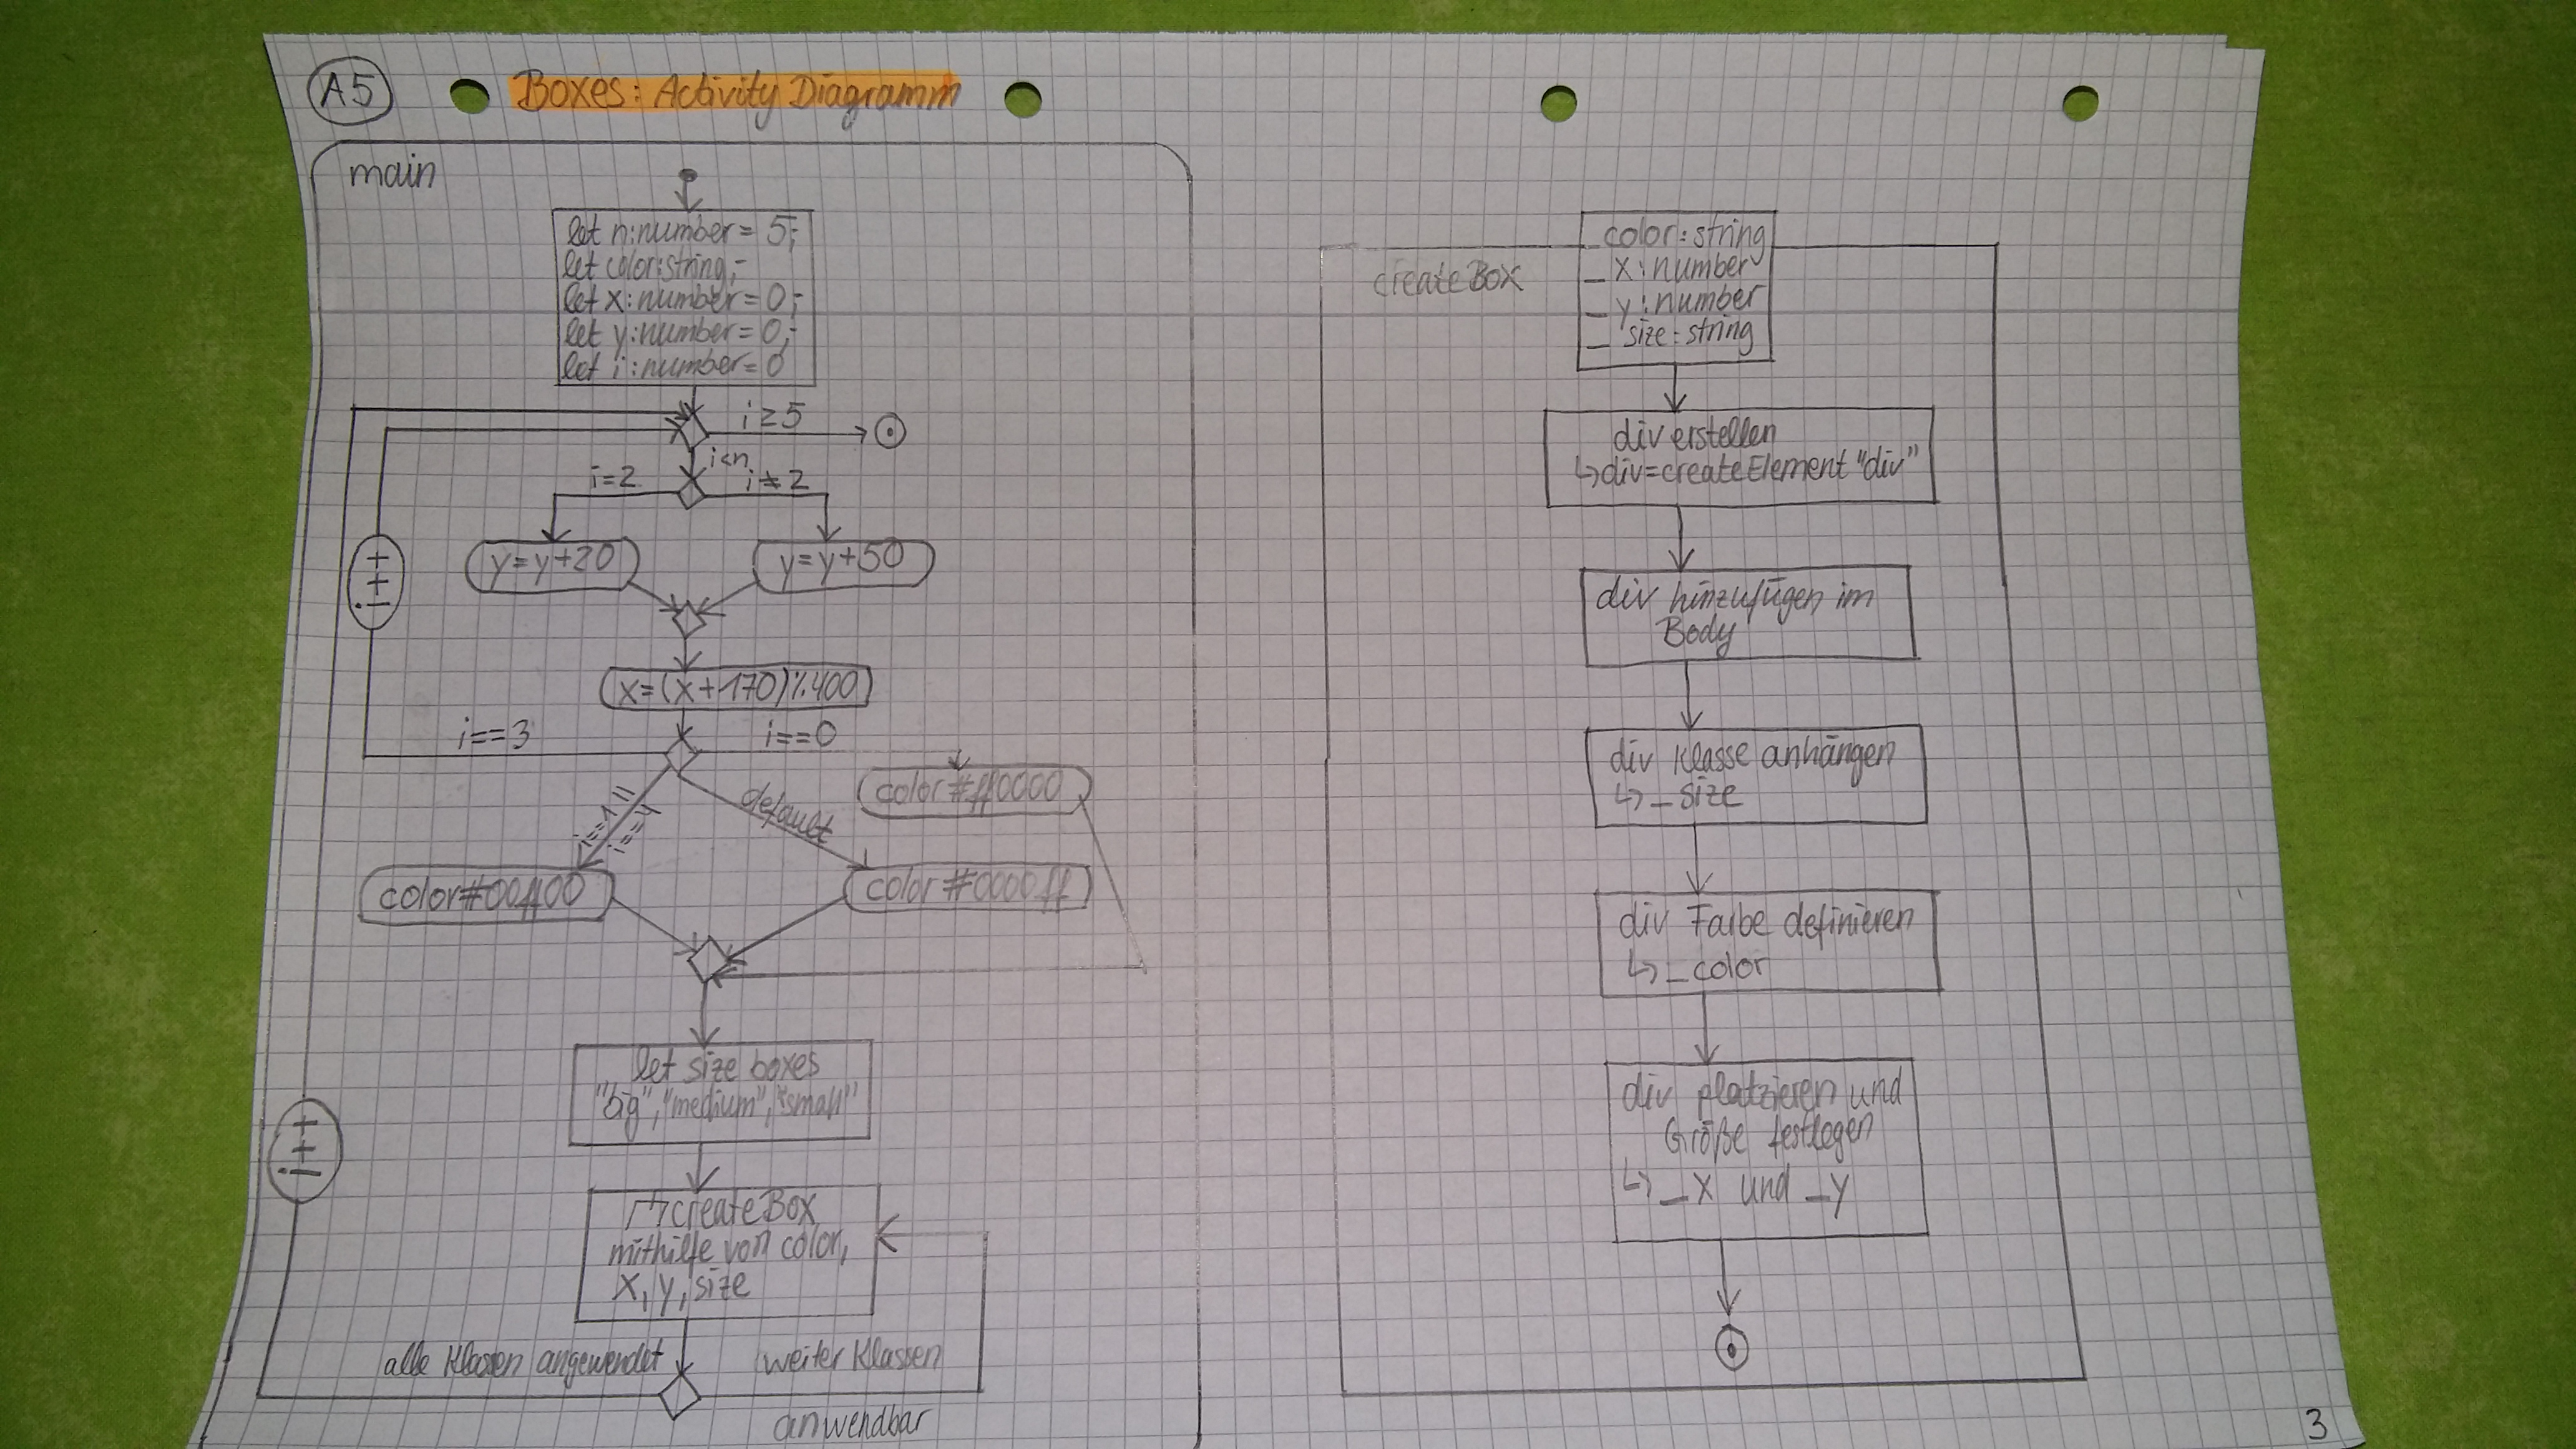 A5
Boxes: Activity Diagramm
main
let n:number = 5;
let color:string;
let x:number = 0;
let y:number = 0;
let i:number = 0
i ≥ 5
i<n
i=2
i ≠ 2
y = y+20
y = y+50
++i
x = (x+170)%400
i==3
i==0
color #ff0000
i==1
i==4
default
color #00ff00
color #0000ff
let size boxes
"big", "medium", "small"
createBox
mithilfe von color,
x, y, size
++i
alle Klassen angewendet
weiter Klassen
anwendbar
createBox
_ color: string
_ x: number
_ y: number
_ size: string
div erstellen
↳ div=createElement "div"
div hinzufügen im
Body
div Klasse anhängen
↳ _size
div Farbe definieren
↳ _color
div platzieren und
Größe festlegen
↳ _x und _y
3